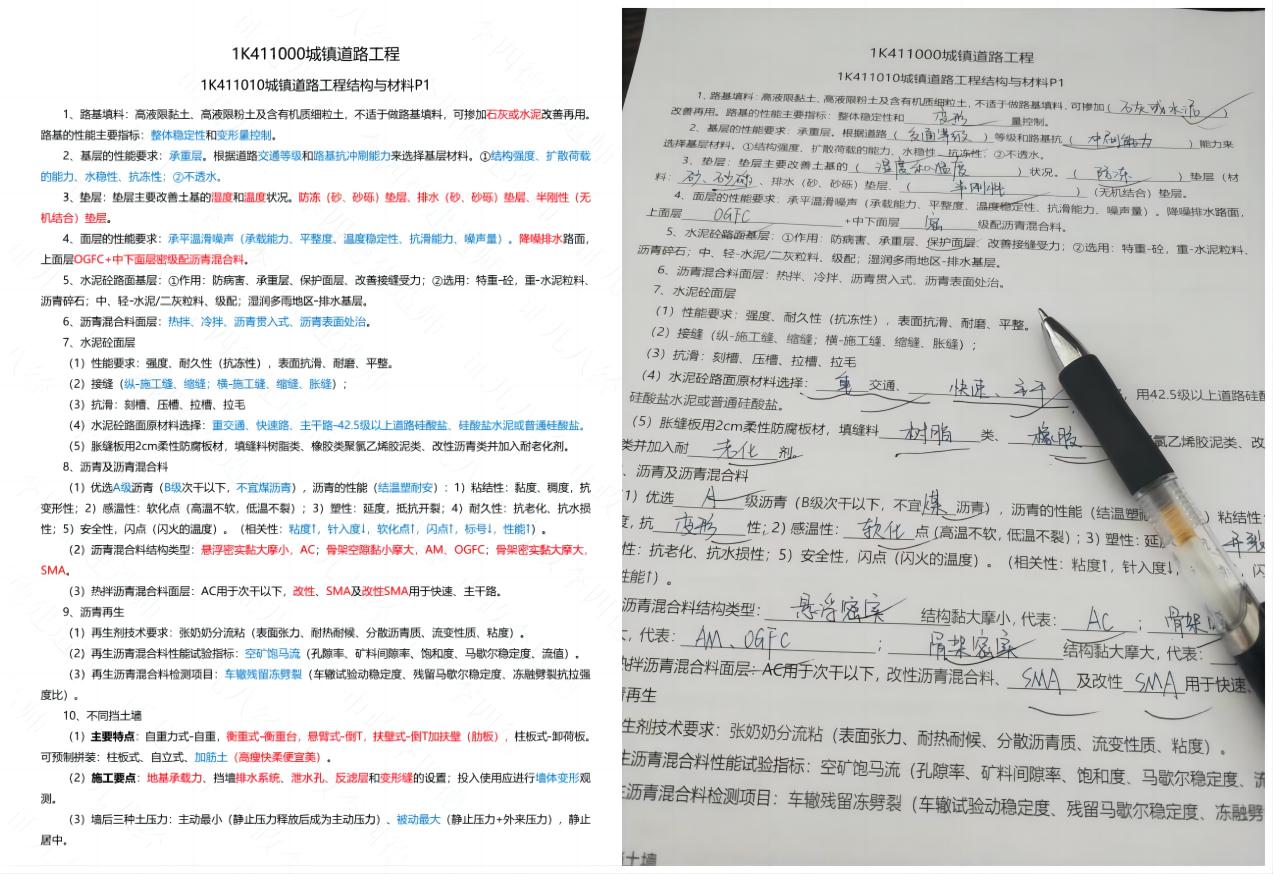 1K411000城镇道路工程
1K411010城镇道路工程结构与材料P1
1、路基填料：高液限黏土、高液限粉土及含有机质细粒土，不适于做路基填料，可掺加石灰或水泥改善再用。
路基的性能主要指标：整体稳定性和变形量控制。
2、基层的性能要求：承重层。根据道路交通等级和路基抗冲刷能力来选择基层材料。①结构强度、扩散荷载
的能力、水稳性、抗冻性；②不透水。
3、垫层：垫层主要改善土基的湿度和温度状况。防冻（砂、砂砾）垫层、排水（砂、砂砾）垫层、半刚性（无
机结合）垫层。
4、面层的性能要求：承平温滑噪声（承载能力、平整度、温度稳定性、抗滑能力、噪声量）。降噪排水路面，
上面层OGFC+中下面层密级配沥青混合料。
5、水泥砼路面基层：①作用：防病害、承重层、保护面层、改善接缝受力；②选用：特重-砼，重-水泥粒料、
沥青碎石；中、轻-水泥/二灰粒料、级配；湿润多雨地区-排水基层。
6、沥青混合料面层：热拌、冷拌、沥青贯入式、沥青表面处治。
7、水泥砼面层
（1）性能要求：强度、耐久性（抗冻性），表面抗滑、耐磨、平整。
（2）接缝（纵-施工缝、缩缝；横-施工缝、缩缝、胀缝）；
（3）抗滑：刻槽、压槽、拉槽、拉毛
（4）水泥砼路面原材料选择：重交通、快速路、主干路-42.5级以上道路硅酸盐、硅酸盐水泥或普通硅酸盐。
（5）胀缝板用2cm柔性防腐板材，填缝料树脂类、橡胶类聚氯乙烯胶泥类、改性沥青类并加入耐老化剂。
8、沥青及沥青混合料
（1）优选A级沥青（B级次干以下，不宜煤沥青），沥青的性能（结温塑耐安）：1）粘结性：黏度、稠度，抗
变形性；2）感温性：软化点（高温不软，低温不裂）；3）塑性：延度，抵抗开裂；4）耐久性：抗老化、抗水损
性；5）安全性，闪点（闪火的温度）。（相关性：粘度↑，针入度↓，软化点↑，闪点↑，标号↓，性能↑）。
（2）沥青混合料结构类型：悬浮密实黏大摩小，AC；骨架空隙黏小摩大，AM、OGFC；骨架密实黏大摩大，
SMA。
（3）热拌沥青混合料面层：AC用于次干以下，改性、SMA及改性SMA用于快速、主干路。
9、沥青再生
（1）再生剂技术要求：张奶奶分流粘（表面张力、耐热耐候、分散沥青质、流变性质、粘度）。
（2）再生沥青混合料性能试验指标：空矿饱马流（孔隙率、矿料间隙率、饱和度、马歇尔稳定度、流值）。
（3）再生沥青混合料检测项目：车辙残留冻劈裂（车辙试验动稳定度、残留马歇尔稳定度、冻融劈裂抗拉强
度比）。
10、不同挡土墙
（1）主要特点：自重力式-自重，衡重式-衡重台，悬臂式-倒T，扶壁式-倒T加扶壁（肋板），柱板式-卸荷板。
可预制拼装：柱板式、自立式、加筋土（高瘦快柔便宜美）。
（2）施工要点：地基承载力、挡墙排水系统、泄水孔、反滤层和变形缝的设置；投入使用应进行墙体变形观
测。
（3）墙后三种土压力：主动最小（静止压力释放后成为主动压力）、被动最大（静止压力+外来压力），静止
居中。
1K411000城镇道路工程
1K411010城镇道路工程结构与材料P1
1、路基填料：高液限黏土、高液限粉土及含有机质细粒土，不适于做路基填料，可掺加（石灰或水泥）
改善再用。路基的性能主要指标：整体稳定性和 变形 量控制。
2、基层的性能要求：承重层。根据道路（交通等级）等级和路基抗（冲刷能力）能力来
选择基层材料。①结构强度、扩散荷载的能力、水稳性、抗冻性；②不透水。
3、垫层：垫层主要改善土基的（湿度和温度）状况。（防冻）垫层（材
料：砂、砂砾、排水（砂、砂砾）垫层、（半刚性）（无机结合）垫层。
4、面层的性能要求：承平温滑噪声（承载能力、平整度、温度稳定性、抗滑能力、噪声量）。降噪排水路面，
上面层 OGFC +中下面层 密 级配沥青混合料。
5、水泥砼路面基层：①作用：防病害、承重层、保护面层、改善接缝受力；②选用：特重-砼，重-水泥粒料、
沥青碎石；中、轻-水泥/二灰粒料、级配；湿润多雨地区-排水基层。
6、沥青混合料面层：热拌、冷拌、沥青贯入式、沥青表面处治。
7、水泥砼面层
（1）性能要求：强度、耐久性（抗冻性），表面抗滑、耐磨、平整。
（2）接缝（纵-施工缝、缩缝；横-施工缝、缩缝、胀缝）；
（3）抗滑：刻槽、压槽、拉槽、拉毛
（4）水泥砼路面原材料选择： 重 交通、 快速、主干 ，用42.5级以上道路硅酸
硅酸盐水泥或普通硅酸盐。
（5）胀缝板用2cm柔性防腐板材，填缝料 树脂 类、 橡胶 聚氯乙烯胶泥类、改
类并加入耐 老化 剂。
、沥青及沥青混合料
1）优选 A 级沥青（B级次干以下，不宜 煤 沥青），沥青的性能（结温塑耐 粘结性
度，抗 变形 性；2）感温性： 软化 点（高温不软，低温不裂）；3）塑性：延 开裂
性：抗老化、抗水损性；5）安全性，闪点（闪火的温度）。（相关性：粘度↑，针入度↓， 闪
性能↑）。
沥青混合料结构类型： 悬浮密实 结构黏大摩小，代表： AC ； 骨架
，代表： AM、OGFC ； 骨架密实 结构黏大摩大，代表：
热拌沥青混合料面层：AC用于次干以下，改性沥青混合料、 SMA 及改性 SMA 用于快速
再生
生剂技术要求：张奶奶分流粘（表面张力、耐热耐候、分散沥青质、流变性质、粘度）。
生沥青混合料性能试验指标：空矿饱马流（孔隙率、矿料间隙率、饱和度、马歇尔稳定度、流
生沥青混合料检测项目：车辙残留冻劈裂（车辙试验动稳定度、残留马歇尔稳定度、冻融劈
土墙